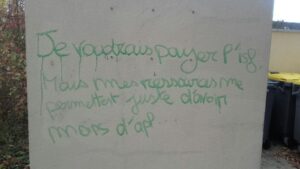 Je voudrais payer l'isf.
Mais mes ressources me
permettent juste d'avoir
mars d'apl...